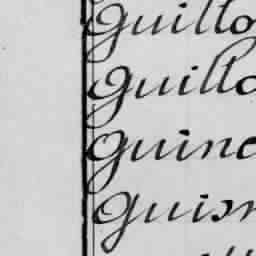 Guillo
Guillo
Guine
Guisn